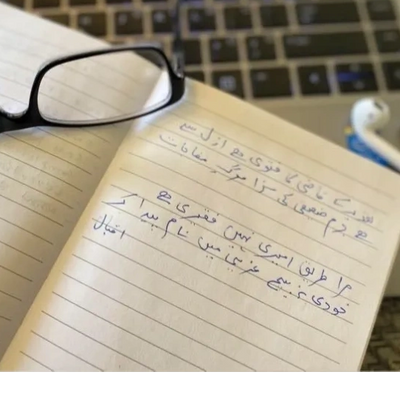 تقدیر کے قاضی کا فتویٰ ہے ازل سے
ہے جرم ضعیفی کی سزا مرگِ مفاجات
مرا طریق امیری نہیں فقیری ہے
خودی نہ بیچ غریبی میں نام پیدا کر
اقبال